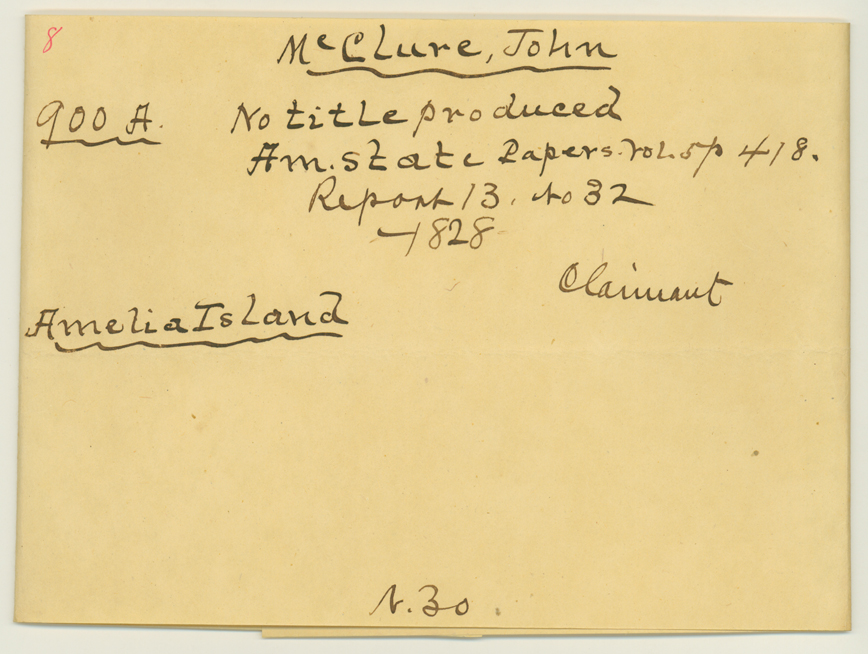 8
McClure, John
900 A. No title produced
Am. State Papers. Vol. 5 p 418.
Report 13. No 32
1828
Claimant
Amelia Island
N. 30.